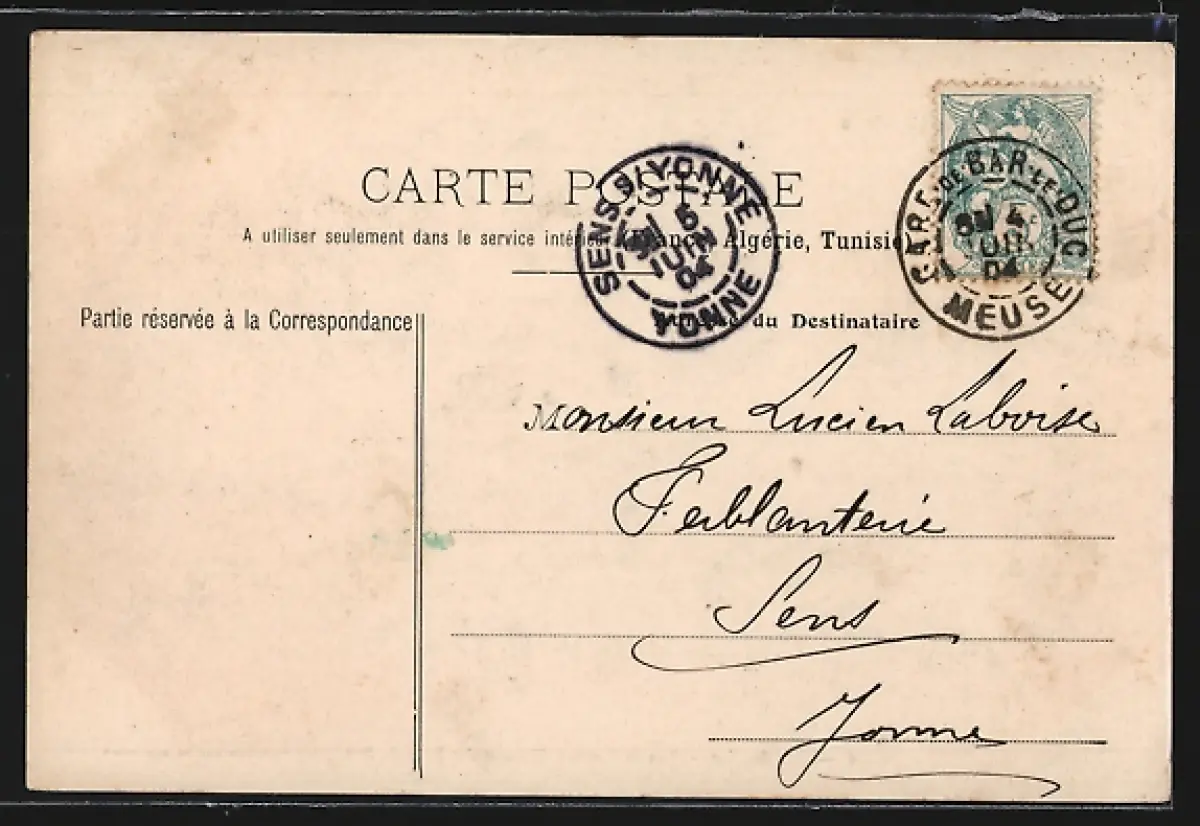 CARTE POSTALE
A utiliser seulement dans le service intérieur (France, Algérie, Tunisie)
SENS S/YONNE
5
JUIN
04
YONNE
GARE DE BAR-LE-DUC
4
JUIN
04
MEUSE
Partie réservée à la Correspondance
du Destinataire
Monsieur Lucien Laboise
Ferblanterie
Sens
Yonne